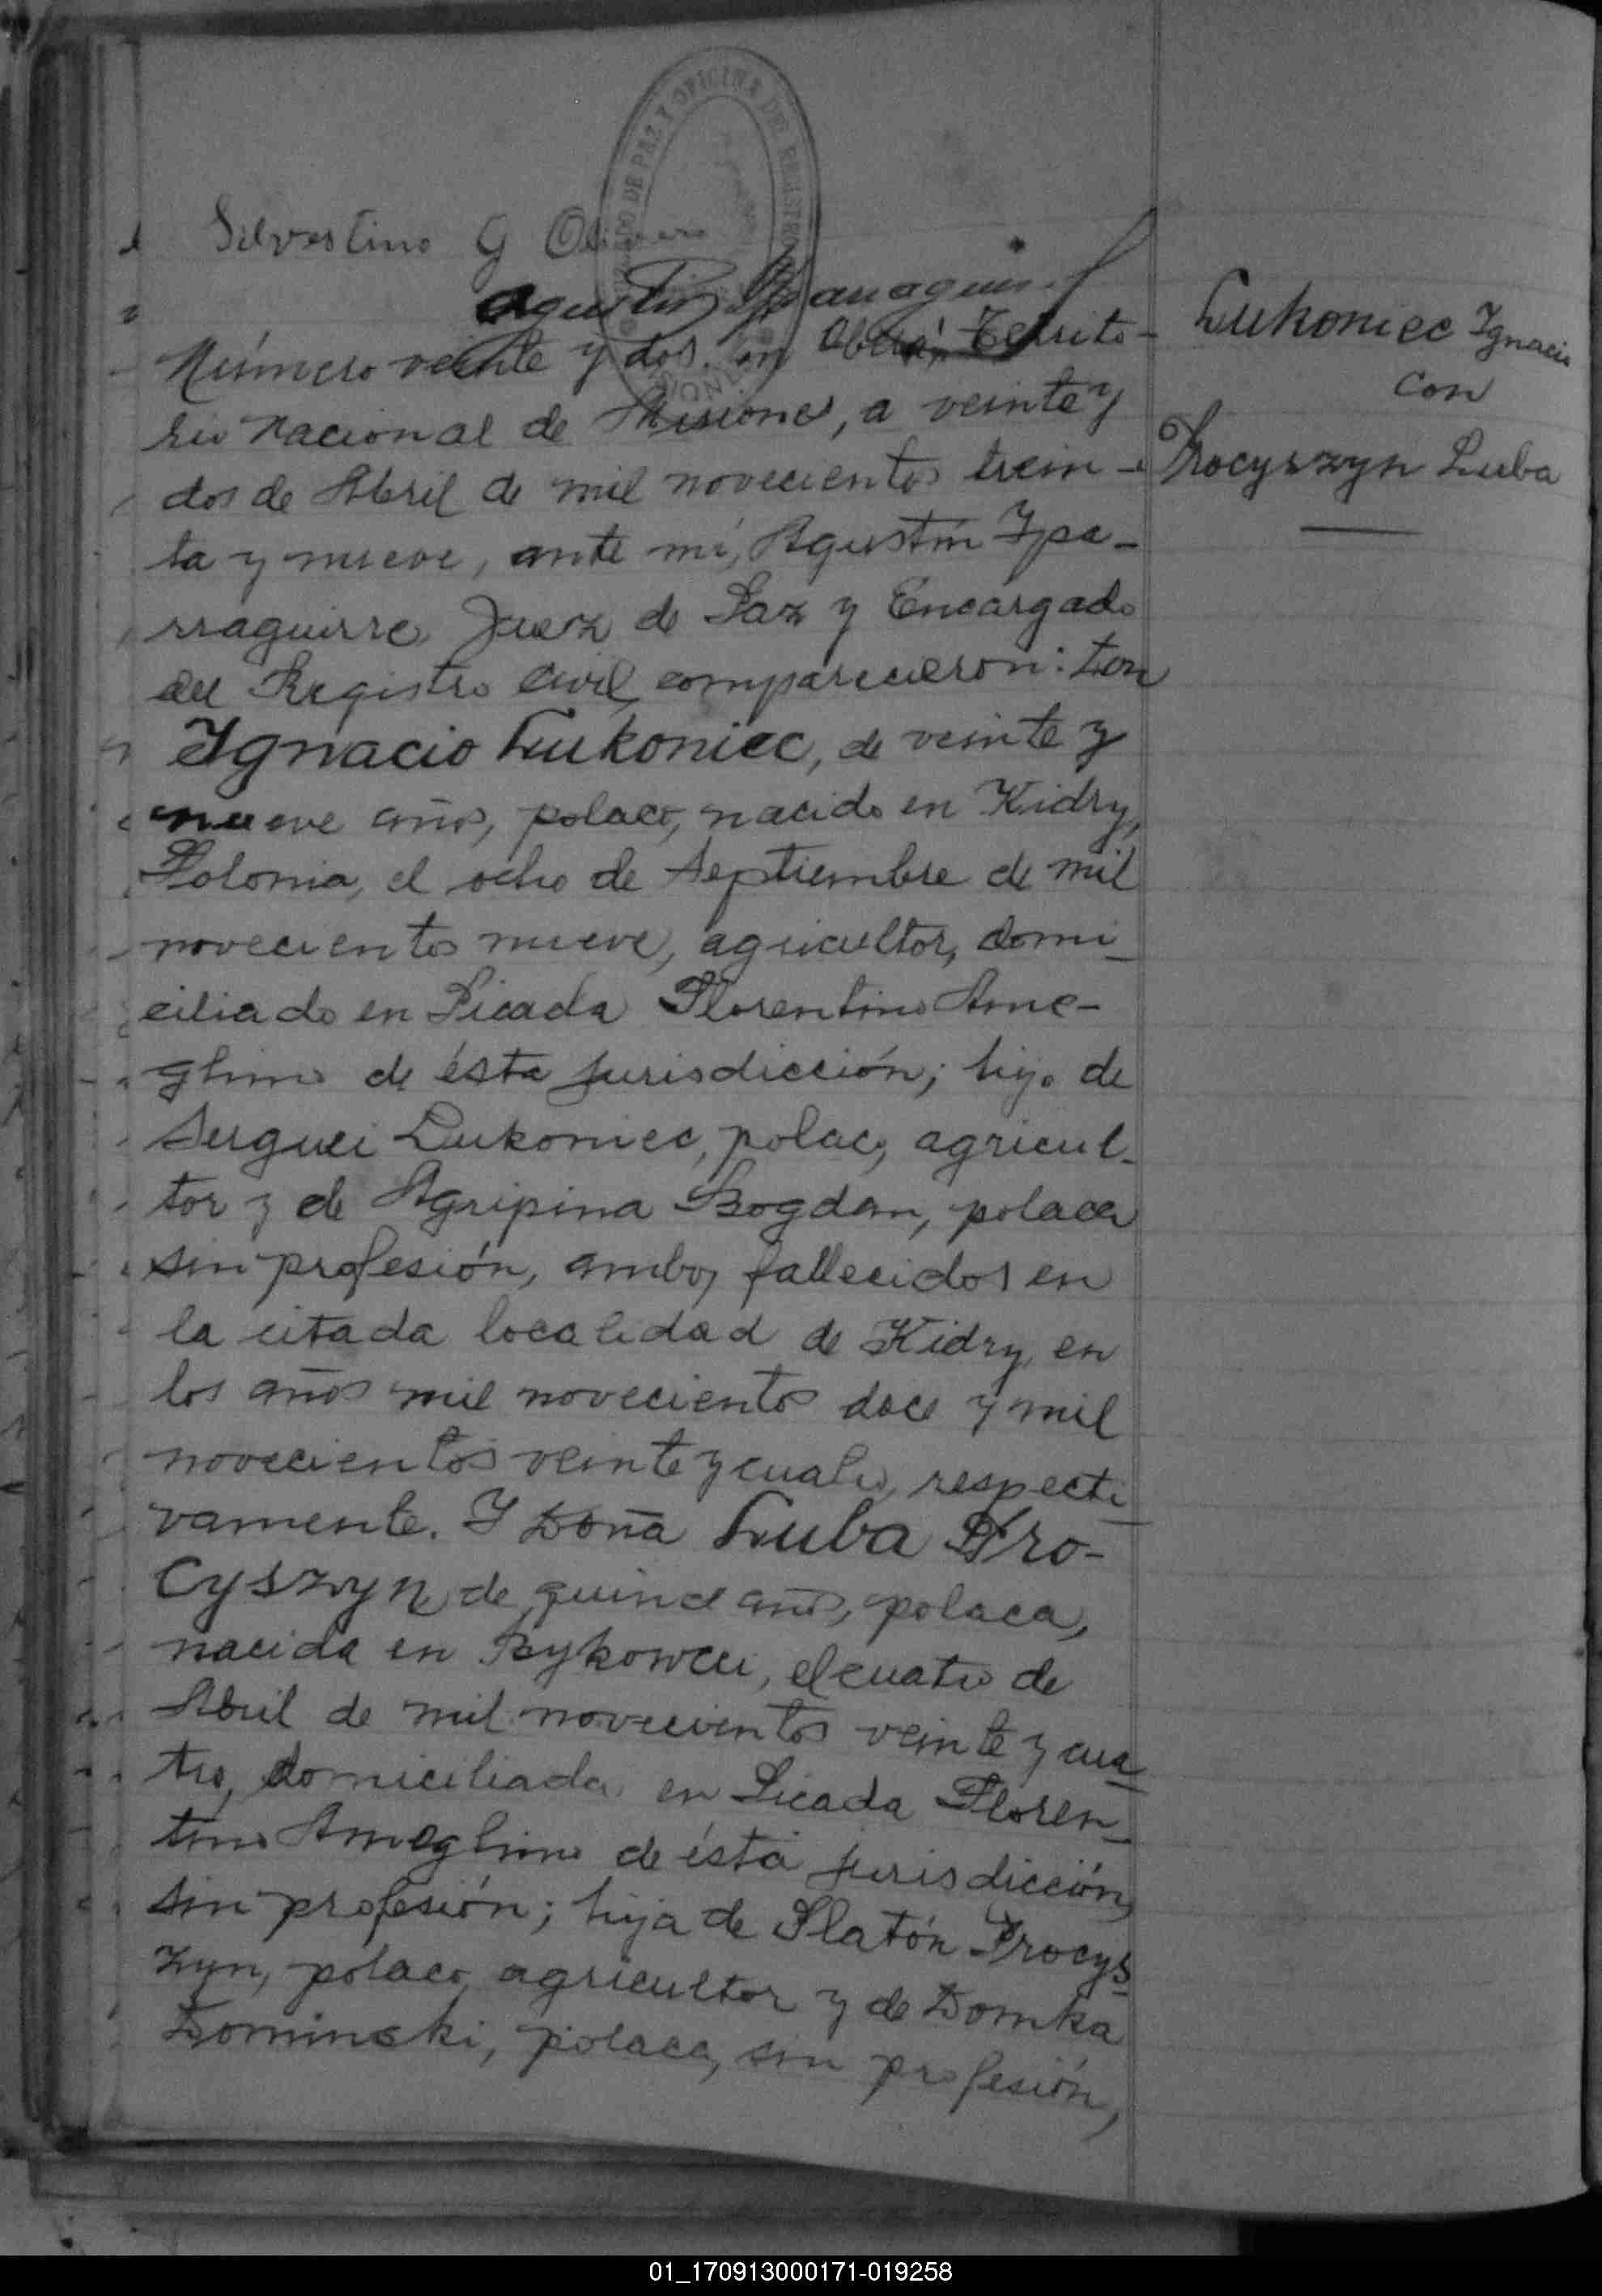 JUZGADO DE PAZ Y OFICINA DEL REGISTRO
Silvestino G
Agustin Yparraguirre
Número veinte y dos. en Oberá, Territo-
rio Nacional de Misiones, a veinte y
dos de Abril de mil novecientos trein-
ta y nueve, ante mí, Agustín Ypa-
rraguirre, Juez de Paz y Encargado
del Registro Civil, comparecieron: Don
Ignacio Lukoniec, de veinte y
nueve años, polaco, nacido en Kidry,
Polonia, el ocho de Septiembre de mil
novecientos nueve, agricultor, domi-
ciliado en Picada Florentino Ame-
ghino de ésta jurisdicción; hijo de
Serguei Lukoniec, polaco, agricul-
tor y de Agripina Bogdan, polaca
sin profesión, ambos fallecidos en
la citada localidad de Kidry, en
los años mil novecientos doce y mil
novecientos veinte y cuatro, respecti-
vamente. Y Doña Luba Pro-
cyszyn, de quince años, polaca,
nacida en Bykowcu, el cuatro de
Abril de mil novecientos veinte y cua-
tro, domiciliada en Picada Floren-
tino Ameghino de ésta jurisdicción,
sin profesión; hija de Platón Procys-
zyn, polaco, agricultor y de Domka
Dominski, polaca, sin profesión,
Lukoniec Ignacio
con
Procyszyn Luba
01_170913000171-019258